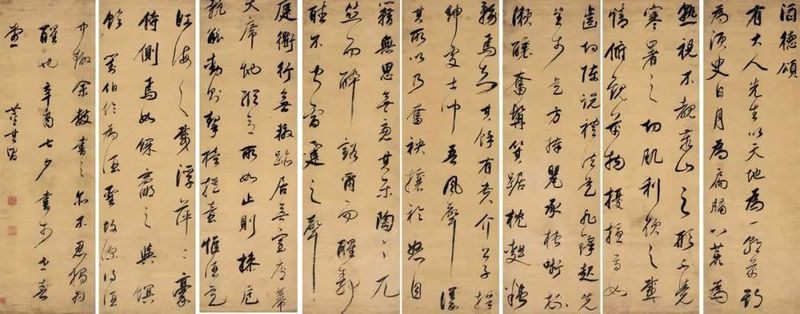 酒德頌
有大人先生以天地為一朝萬期
為須臾日月為扃牖八荒為
熟視不覩泰山之形不覺
寒暑之切肌利欲之感
情俯觀萬物擾擾焉如
齒切陳說禮法是非鋒起先
生於是方捧甖承槽銜杯
漱醪奮髯箕踞枕麴藉
務焉知其餘有貴介公子搢
紳處士聞吾風聲議
其所以乃奮袂攘衿怒目
糟無思無慮其樂陶陶兀
然而醉豁爾而醒靜
聽不聞雷霆之聲
庭衢行無轍跡居無室廬幕
天席地縱意所如止則操卮
執觚動則挈榼提壺惟酒是
江海之載浮萍二豪
侍側焉如蜾蠃之與螟
蛉 伯伦為酒 故深得酒
中趣余 書之亦不 獨為
醒也辛酉七夕書於世春
堂 董其昌